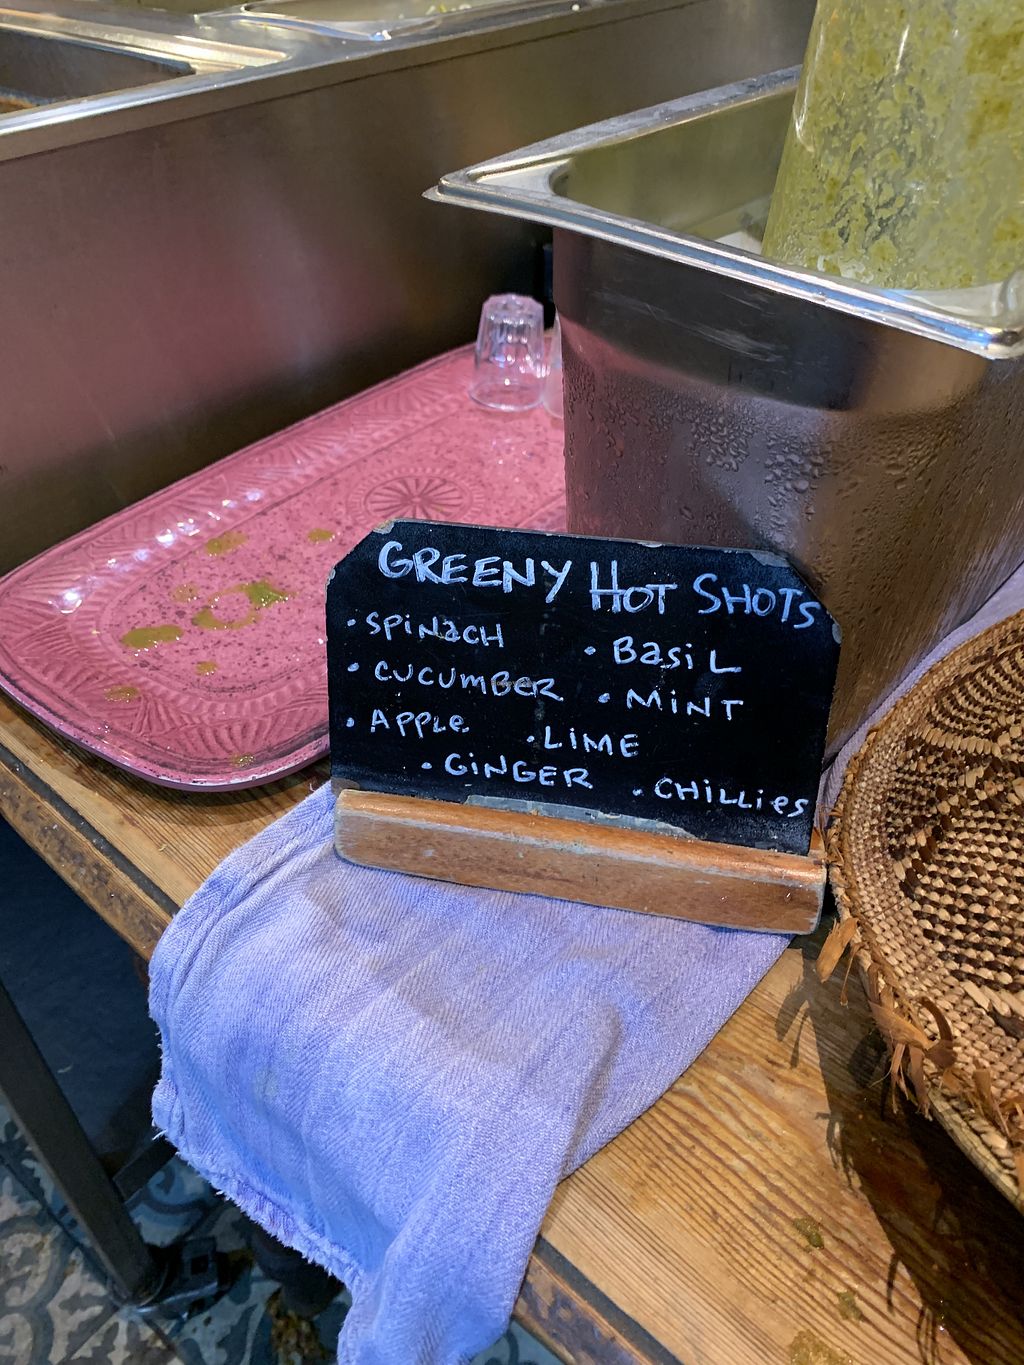 GREENY HOT SHOTS
• SPiNaCH • BasiL
• CUCUMBER • MiNT
• APPLe • LIME
• GiNGER • CHiLLies